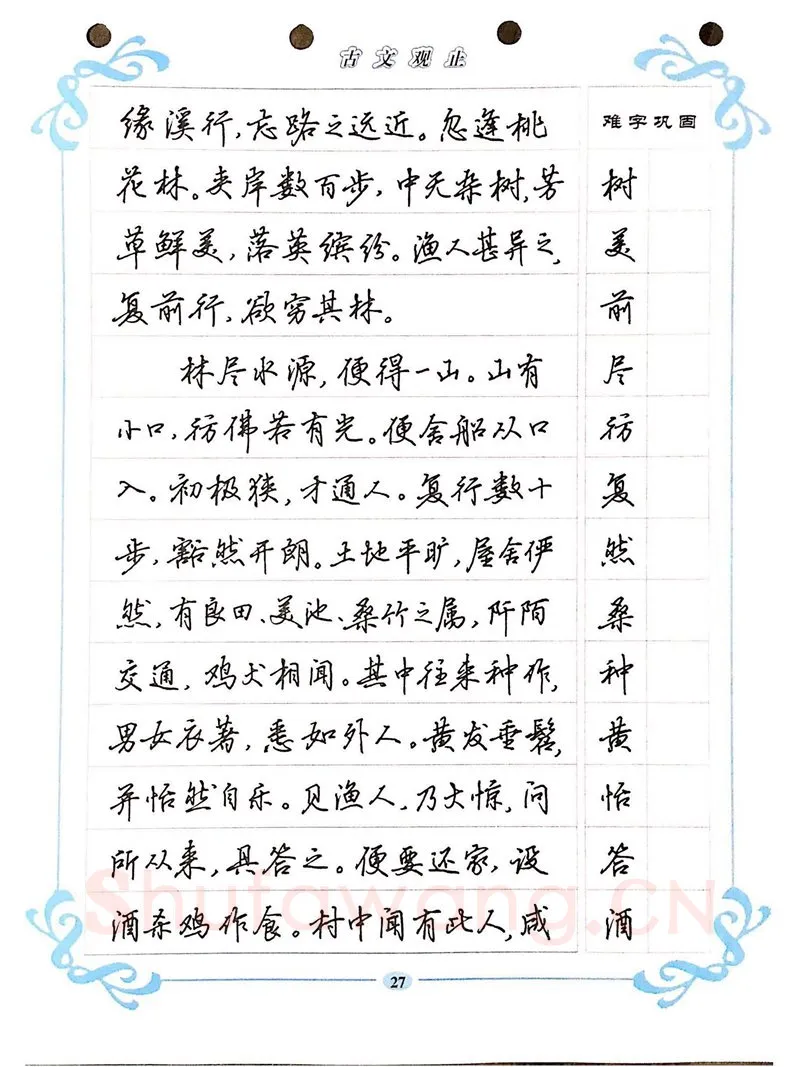 古文观止
缘溪行,忘路之远近。忽逢桃
难字巩固
花林。夹岸数百步,中无杂树,芳
树
草鲜美,落英缤纷。渔人甚异之,
美
复前行,欲穷其林。
前
林尽水源,便得一山。山有
尽
小口,彷佛若有光。便舍船从口
彷
入。初极狭,才通人。复行数十
复
步,豁然开朗。土地平旷,屋舍俨
然
然,有良田、美池、桑竹之属,阡陌
桑
交通,鸡犬相闻。其中往来种作,
种
男女衣著,悉如外人。黄发垂髫,
黄
并怡然自乐。见渔人,乃大惊,问
怡
所从来,具答之。便要还家,设
答
酒杀鸡作食。村中闻有此人,咸
酒
Shufawang.CN
27